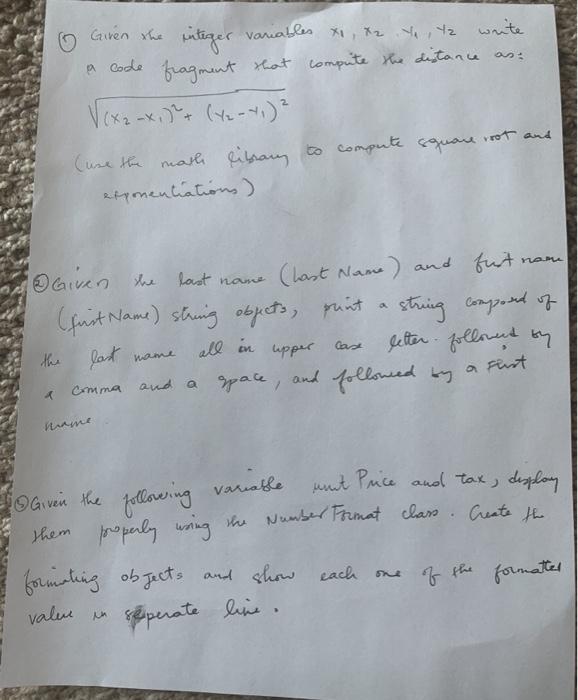 ① Given the integer variables x1, x2 y1, y2 write
a code fragment that compute the distance as:
√(x2-x1)²+ (y2-y1)²
(use the math library to compute square root and
exponentiations)
② Given the last name (last Name) and first name
(first Name) string objects, print a string composed of
the last name all in upper case letter. followed by
a comma and a space, and followed by a First
name
③ Given the following variable unit Price and tax, display
them properly using the Number Format class. Create the
formating objects and show each one of the formatted
value in seperate line.